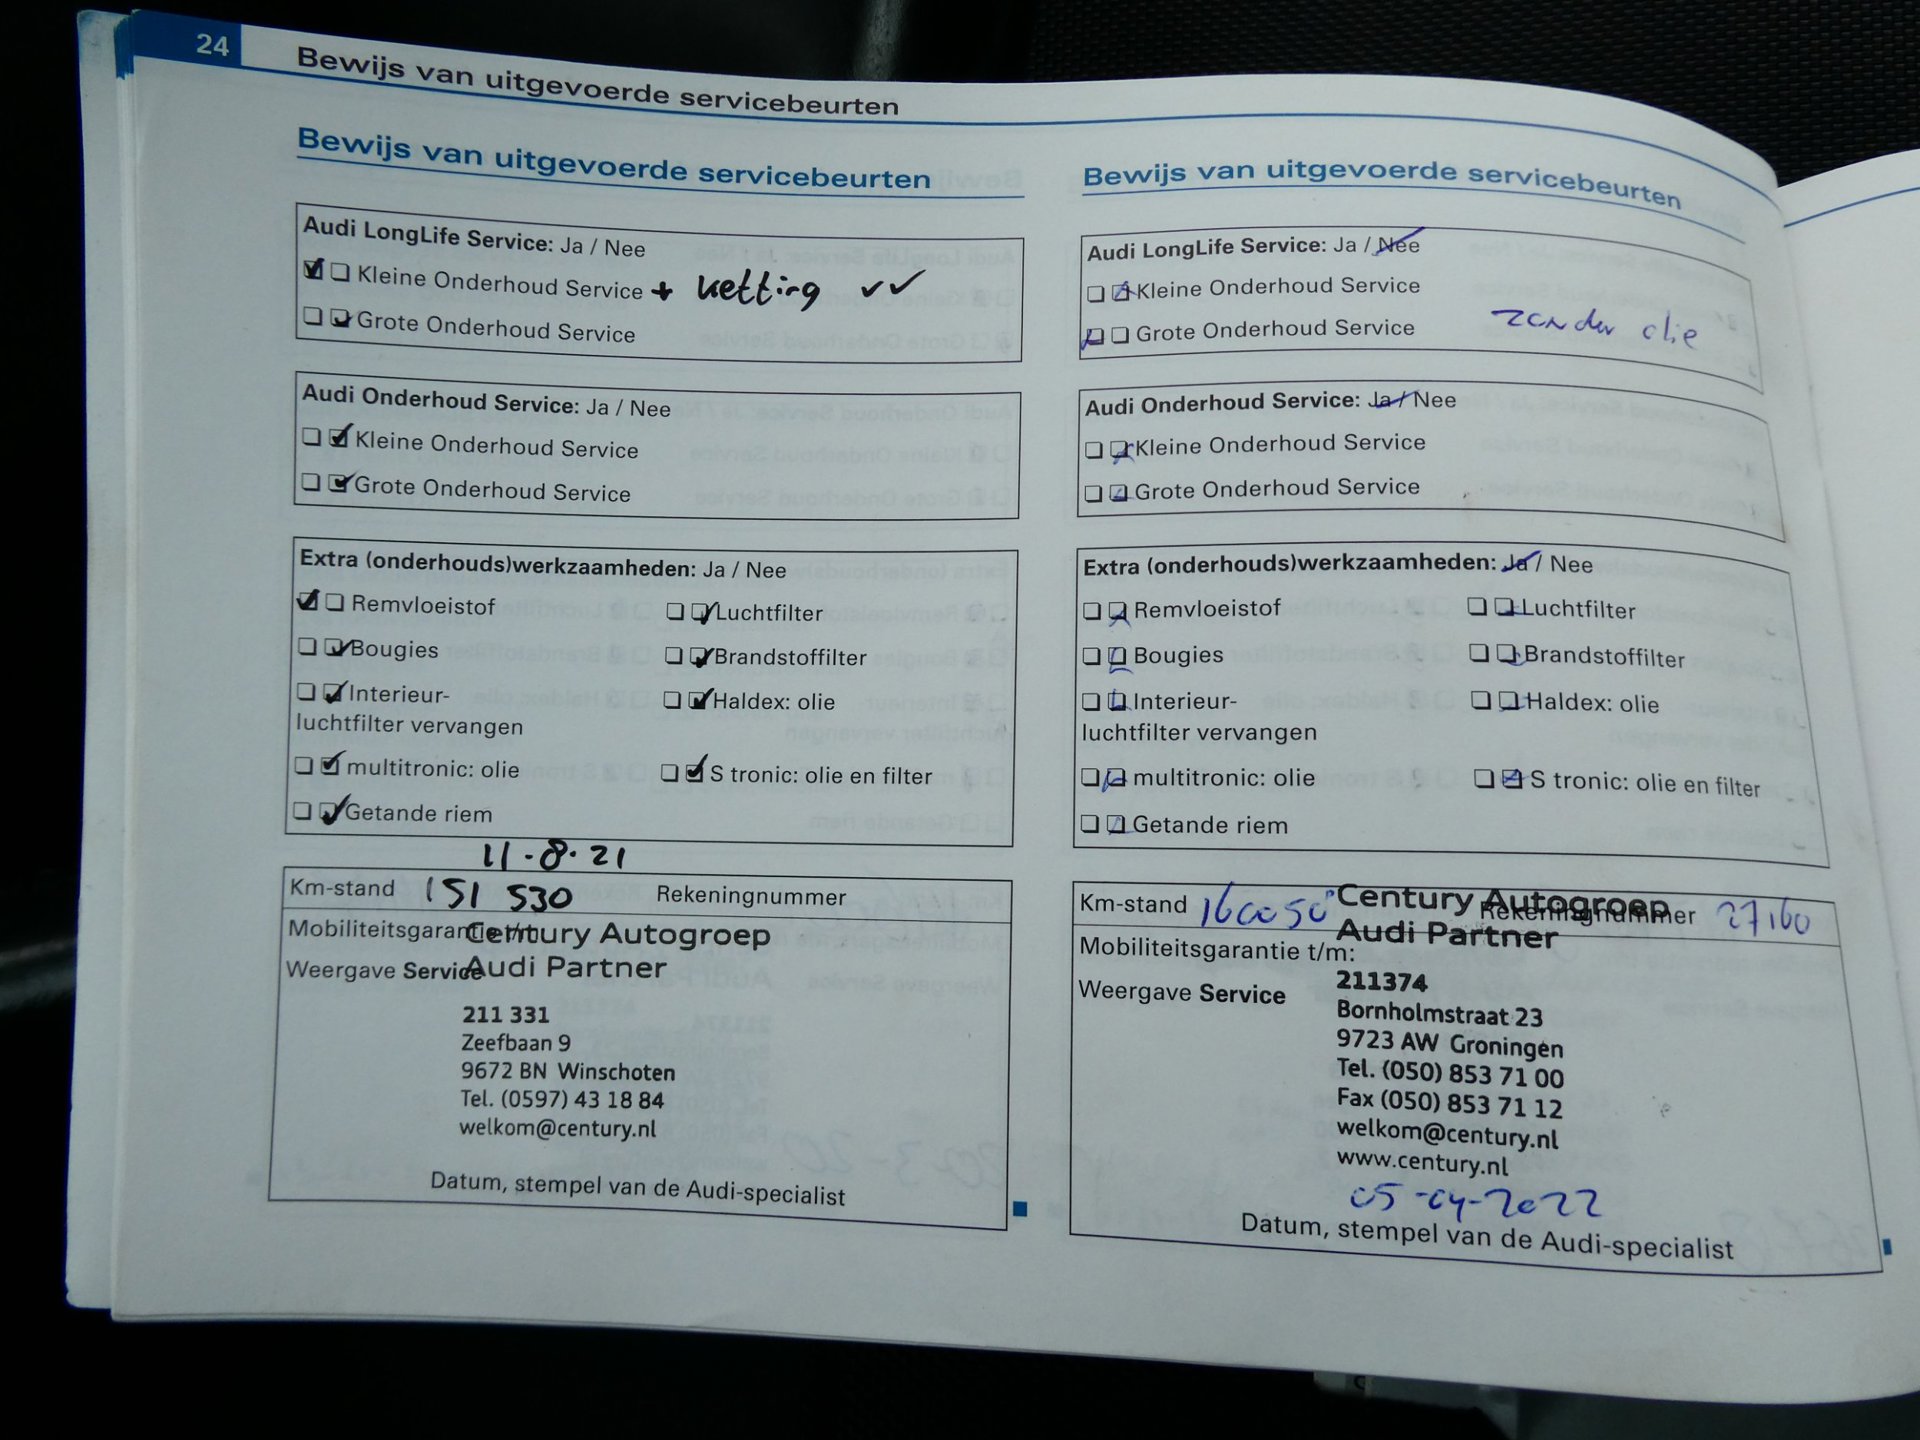 24
Bewijs van uitgevoerde servicebeurten
Bewijs van uitgevoerde servicebeurten
Audi LongLife Service: Ja / Nee
Kleine Onderhoud Service + ketting ✓✓
Grote Onderhoud Service
Audi Onderhoud Service: Ja / Nee
Kleine Onderhoud Service
Grote Onderhoud Service
Extra (onderhouds)werkzaamheden: Ja / Nee
Remvloeistof Luchtfilter
Bougies Brandstoffilter
Interieur- Haldex: olie
luchtfilter vervangen
multitronic: olie S tronic: olie en filter
Getande riem
11-8-21
Km-stand 151 530 Rekeningnummer
Mobiliteitsgarantie t/m
Century Autogroep
Weergave Service
Audi Partner
211 331
Zeefbaan 9
9672 BN Winschoten
Tel. (0597) 43 18 84
welkom@century.nl
Datum, stempel van de Audi-specialist
Bewijs van uitgevoerde servicebeurten
Audi LongLife Service: Ja / Nee
Kleine Onderhoud Service
Grote Onderhoud Service zonder olie
Audi Onderhoud Service: Ja / Nee
Kleine Onderhoud Service
Grote Onderhoud Service
Extra (onderhouds)werkzaamheden: Ja / Nee
Remvloeistof Luchtfilter
Bougies Brandstoffilter
Interieur- Haldex: olie
luchtfilter vervangen
multitronic: olie S tronic: olie en filter
Getande riem
Km-stand 160050 Rekeningnummer 27160
Century Autogroep
Audi Partner
Mobiliteitsgarantie t/m:
211374
Weergave Service
Bornholmstraat 23
9723 AW Groningen
Tel. (050) 853 71 00
Fax (050) 853 71 12
welkom@century.nl
www.century.nl
05-04-2022
Datum, stempel van de Audi-specialist